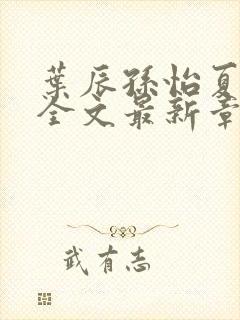 葉辰孫怡夏
全文最新章
武有志